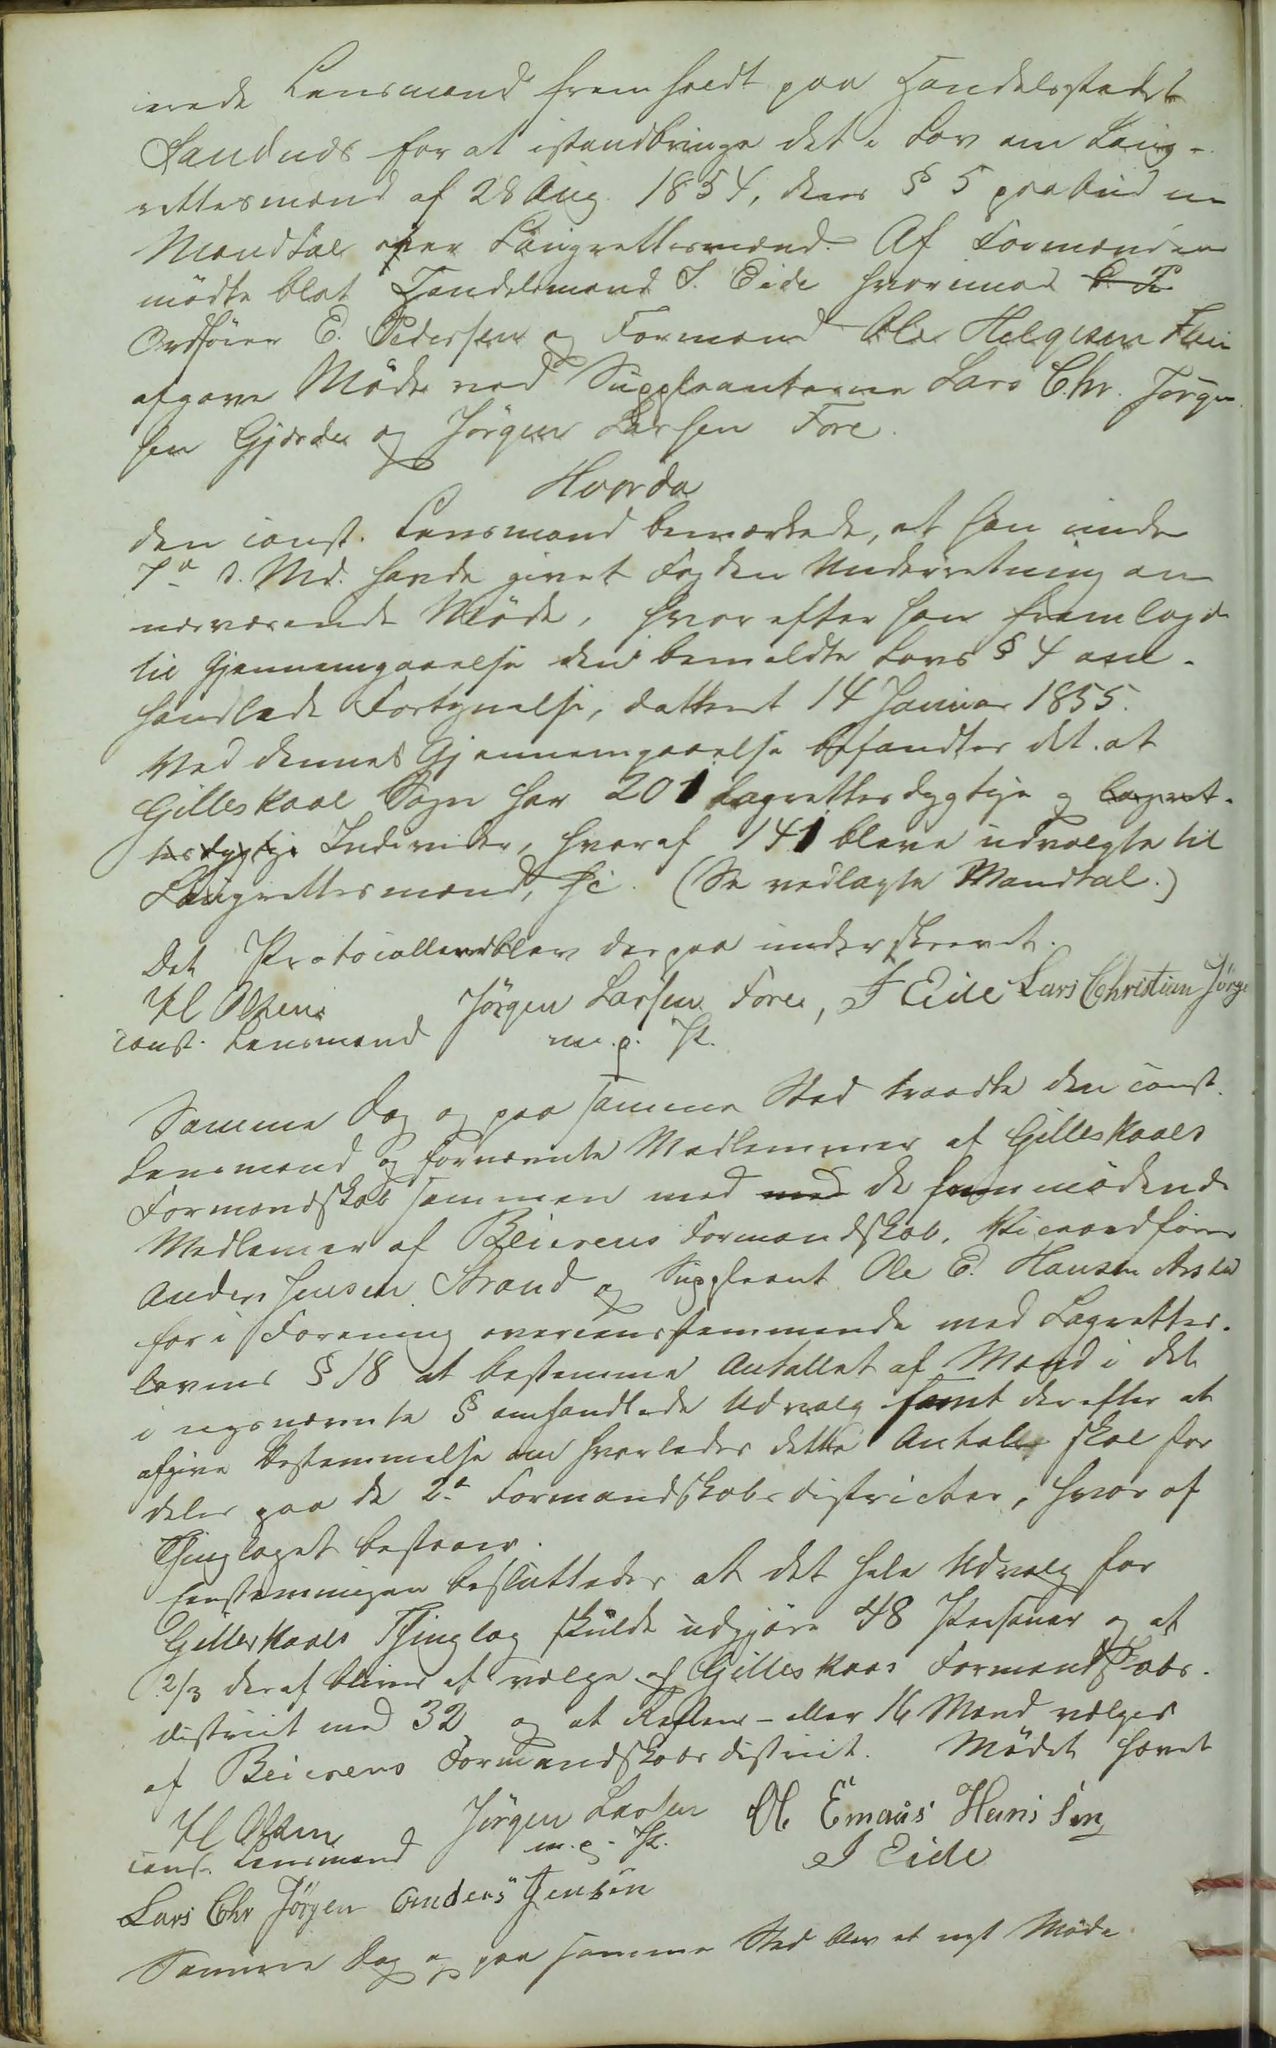 erede Lensmand fremholdt paa Handelsstedet
Sandnes for at istandbringe det i Lov om Laug-
rettesmænd af 28 Aug. 1854, dens § 5 paabud n
Mandtal over Laugrettesmænd. Af Formænden
mødte blot Handelsmand J. Eide hvorimod
Ordfører E. Pedersen og Formand Ole Helgesen Flein
afgave Møde ved Suppleanterne Lars Chr. Jørgen-
sen Gjærde og Jørgen Larsen Fore.
Hvorda
den const. Lensmand bemærkede, at han under
7de d. Md. havde givet Fogden Underretning om
nærværende Møde, hvorefter han fremlagde
til Gjennemgaaelse den bemeldte Lovs § 4 om-
handlede Fortegnelse, datteret 14 Januar 1855.
Ved dennes Gjennemgaaelse befandtes det at
Gilleskaal Sogn har 201 Lagrettesdygtige og lagret-
tesdygtige Individer, hvoraf 141 bleve udvalgte til
Laugrettesmænd, (Se vedlagte Mandtal.)
Det Protocollerede blev derpaa underskrevet.
Hl Olsen Jørgen Larsen Fore, J Eide Lars Christian Jørge
const. Lensmand m. p. P.
Samme Dag og paa samme Sted traadte den const.
Lensmand og fornævnte Medlemmer af Gilleskaals
Formandskab sammen med med de fremmødende
Medlemer af Beierens Formandskab, Viceordfører
Anders Jensen Strand og Suppleant Ole E. Hansen Arstad
for i Forening overeensstemmende med Lagrettes-
lovens § 18 at bestemme Antallet af Mænd i det
i nysnævnte § omhandlede Udvalg samt derefter at
afgive Bestemmelse om hvorledes dette Antal skal for
deles paa de 2de Formandskabsdistricter, hvoraf
Thinglaget bestaaer.
Eenstemmigen besluttedes at det hele Udvalg for
Gilleskaals Thinglag skulde udgjøre 48 Personer og at
2/3 deraf bliver at vælge af Gilleskaas Formandskabs-
district med 32 og at Resten - eller 16 Mand vælges
af Beierens Formandskabsdistrict. Mødet hævet
Hl Olsen Jørgen Larsen Ol. Emaus Hansen
const. Lensmand m. p. P. J Eide
Lars Chr Jørgen Anders Jensen
Samme Dag og paa samme Sted blev et nyt Møde